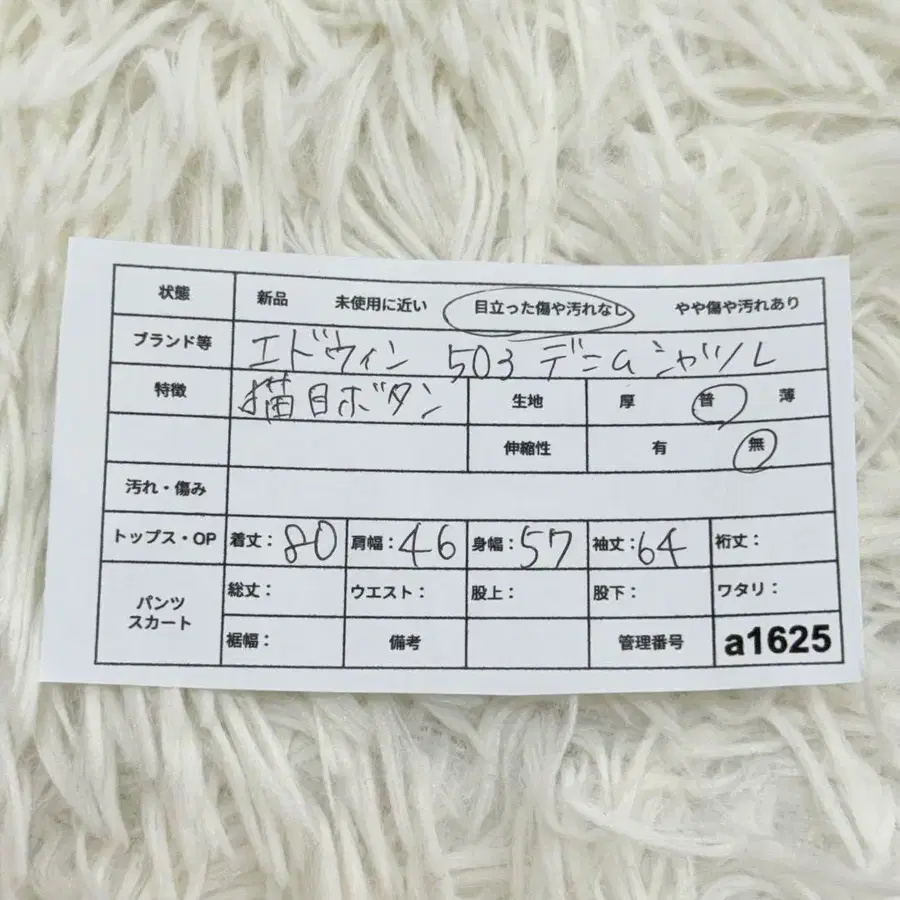 状態 新品 未使用に近い 目立った傷や汚れなし やや傷や汚れあり
ブランド等 エドウィン 503 デニムシャツ L
特徴 猫目ボタン 生地 厚 普 薄
伸縮性 有 無
汚れ・傷み
トップス・OP 着丈：80 肩幅：46 身幅：57 袖丈：64 裄丈：
パンツ スカート 総丈： ウエスト： 股上： 股下： ワタリ：
裾幅： 備考 管理番号 a1625